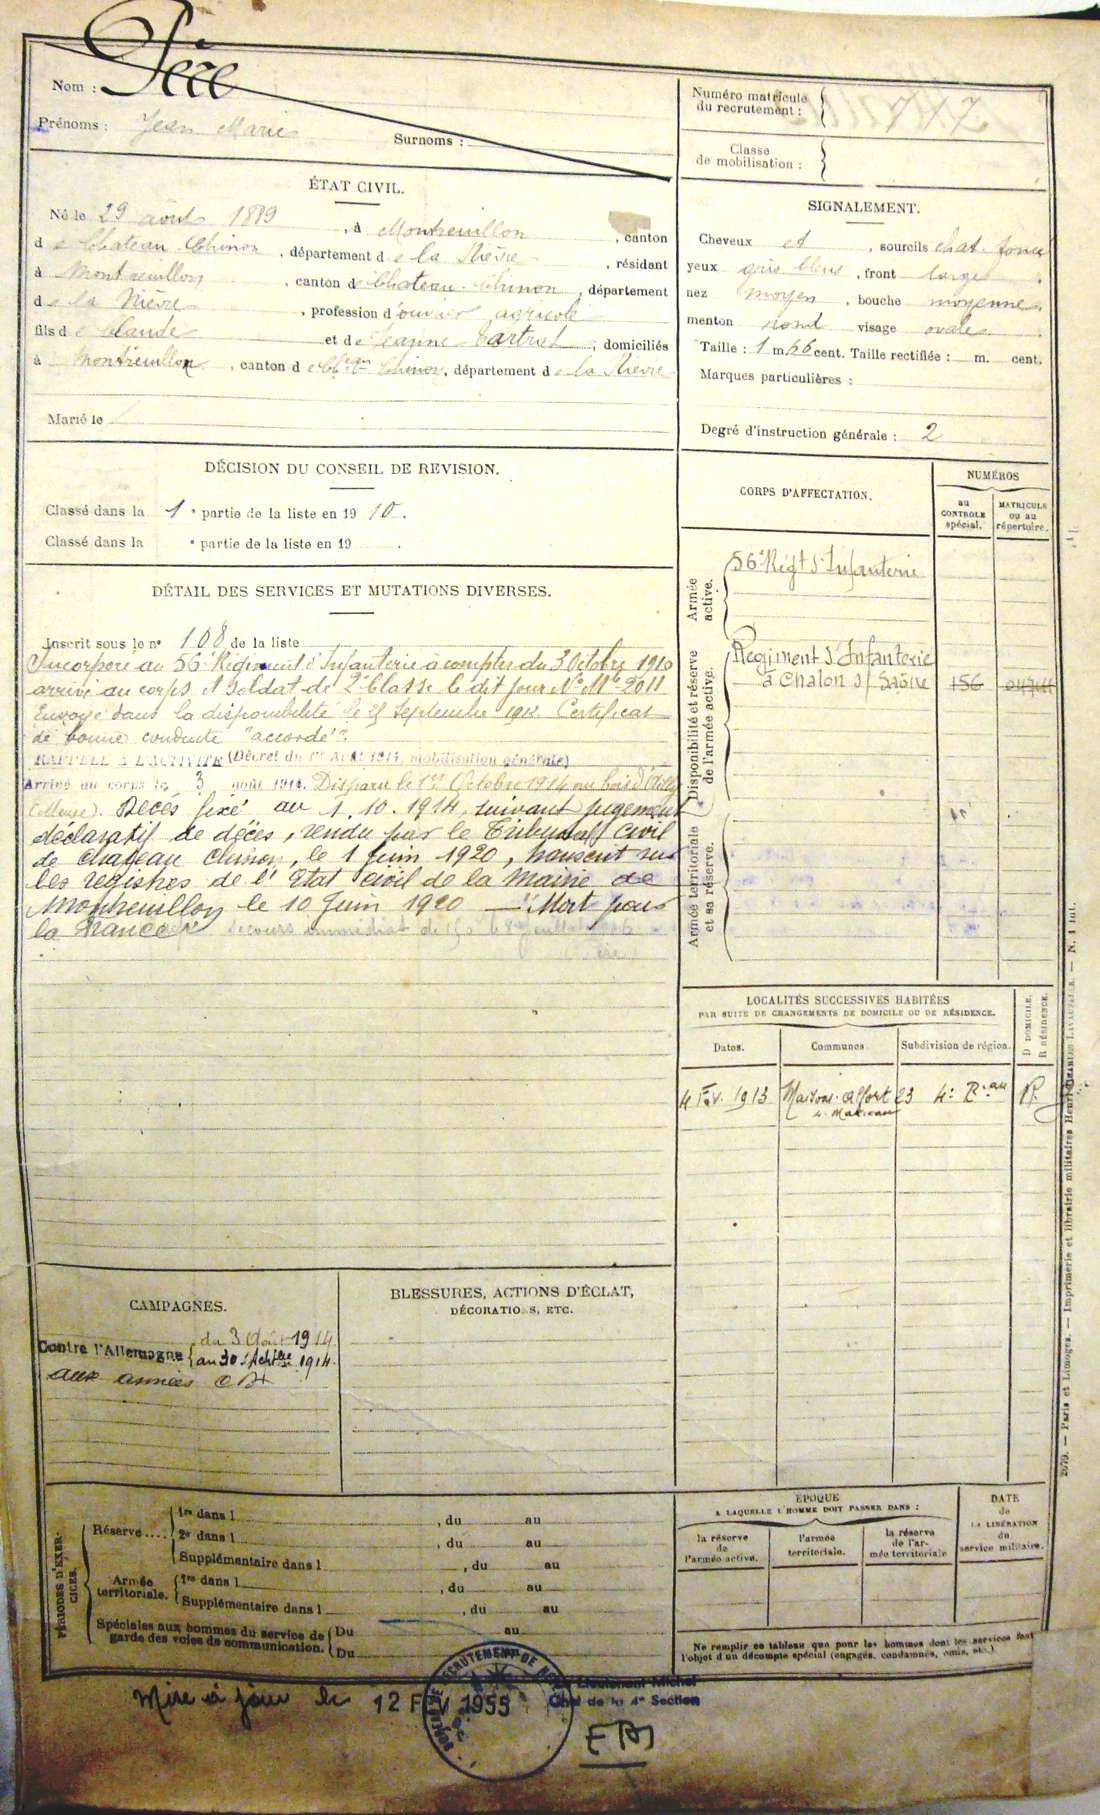 Nom : Père
Prénoms : Jean Marie
Surnoms :
Numéro matricule
du recrutement :
Classe
de mobilisation :
ÉTAT CIVIL.
Né le 29 août 1889, à Montreuillon, canton
de Chateau-Chinon, département de la Nièvre, résidant
à Montreuillon, canton de Chateau-Chinon, département
de la Nièvre, profession d'ouvrier agricole
fils de Claude et de Jeanne Tartrat, domiciliés
à Montreuillon, canton de Ch^eau Chinon, département de la Nièvre
Marié le
SIGNALEMENT.
Cheveux et, sourcils chat. foncé
yeux gris bleu, front large
nez moyen, bouche moyenne
menton rond visage ovale
Taille : 1 m. 66 cent. Taille rectifiée : m. cent.
Marques particulières :
Degré d'instruction générale : 2
DÉCISION DU CONSEIL DE REVISION.
Classé dans la 1 e partie de la liste en 1910.
Classé dans la e partie de la liste en 19 .
DÉTAIL DES SERVICES ET MUTATIONS DIVERSES.
Inscrit sous le n° 108 de la liste
Incorporé au 56e Régiment d'Infanterie à compter du 3 Octobre 1910
arrivé au corps et soldat de 2e Classe le dit jour N° Mle 2011
Envoyé dans la disponibilité le 25 Septembre 1912. Certificat
de bonne conduite "accordé".
RAPPELÉ A L'ACTIVITÉ (Décret du 1er Août 1914, mobilisation générale)
Arrivé au corps le 3 août 1914. Disparu le 1er Octobre 1914 au bois d'Ailly
(Meuse). Décès fixé au 1.10.1914, suivant jugement
déclaratif de décès, rendu par le Tribunal Civil
de Chateau Chinon, le 1 Juin 1920, transcrit sur
les registres de l'Etat civil de la Mairie de
Montreuillon le 10 Juin 1920 — "Mort pour
la France"
secours immédiat de 150
CORPS D'AFFECTATION.
NUMÉROS
au
CONTROLE
spécial.
MATRICULE
ou au
répertoire.
Armée
active.
56e Régt d'Infanterie
Disponibilité et réserve
de l'armée active.
Régiment d'Infanterie
à Chalon s/ Saône 156
Armée territoriale
et sa réserve.
LOCALITÉS SUCCESSIVES HABITÉES
PAR SUITE DE CHANGEMENTS DE DOMICILE OU DE RÉSIDENCE.
Dates.
Communes.
Subdivision de région.
D DOMICILE.
R RÉSIDENCE.
4 Fév. 1913 Maisons-Alfort 23 4e Bau R.
CAMPAGNES.
Contre l'Allemagne du 3 Août 1914
au 30 Septbre 1914.
aux armées
BLESSURES, ACTIONS D'ÉCLAT,
DÉCORATIONS, ETC.
PÉRIODES D'EXERCICES.
Réserve....
1re dans l , du au
2e dans l , du au
Supplémentaire dans l , du au
Armée
territoriale.
1re dans l , du au
Supplémentaire dans l , du au
Spéciales aux hommes du service de
garde des voies de communication.
Du au
Du
ÉPOQUE
A LAQUELLE L'HOMME DOIT PASSER DANS :
la réserve
de
l'armée active.
l'armée
territoriale.
la réserve
de l'ar-
mée territoriale
DATE
de
LA LIBÉRATION
du
service militaire.
Ne remplir ce tableau que pour les hommes dont les services font
l'objet d'un décompte spécial (engagés, condamnés, omis, etc.)
Mise à jour le 12 FEV 1955
Lieutenant Michel
Chef de la 4e Section
2679. — Paris et Limoges. — Imprimerie et librairie militaires Henri CHARLES-LAVAUZELLE. — N. 1 int.